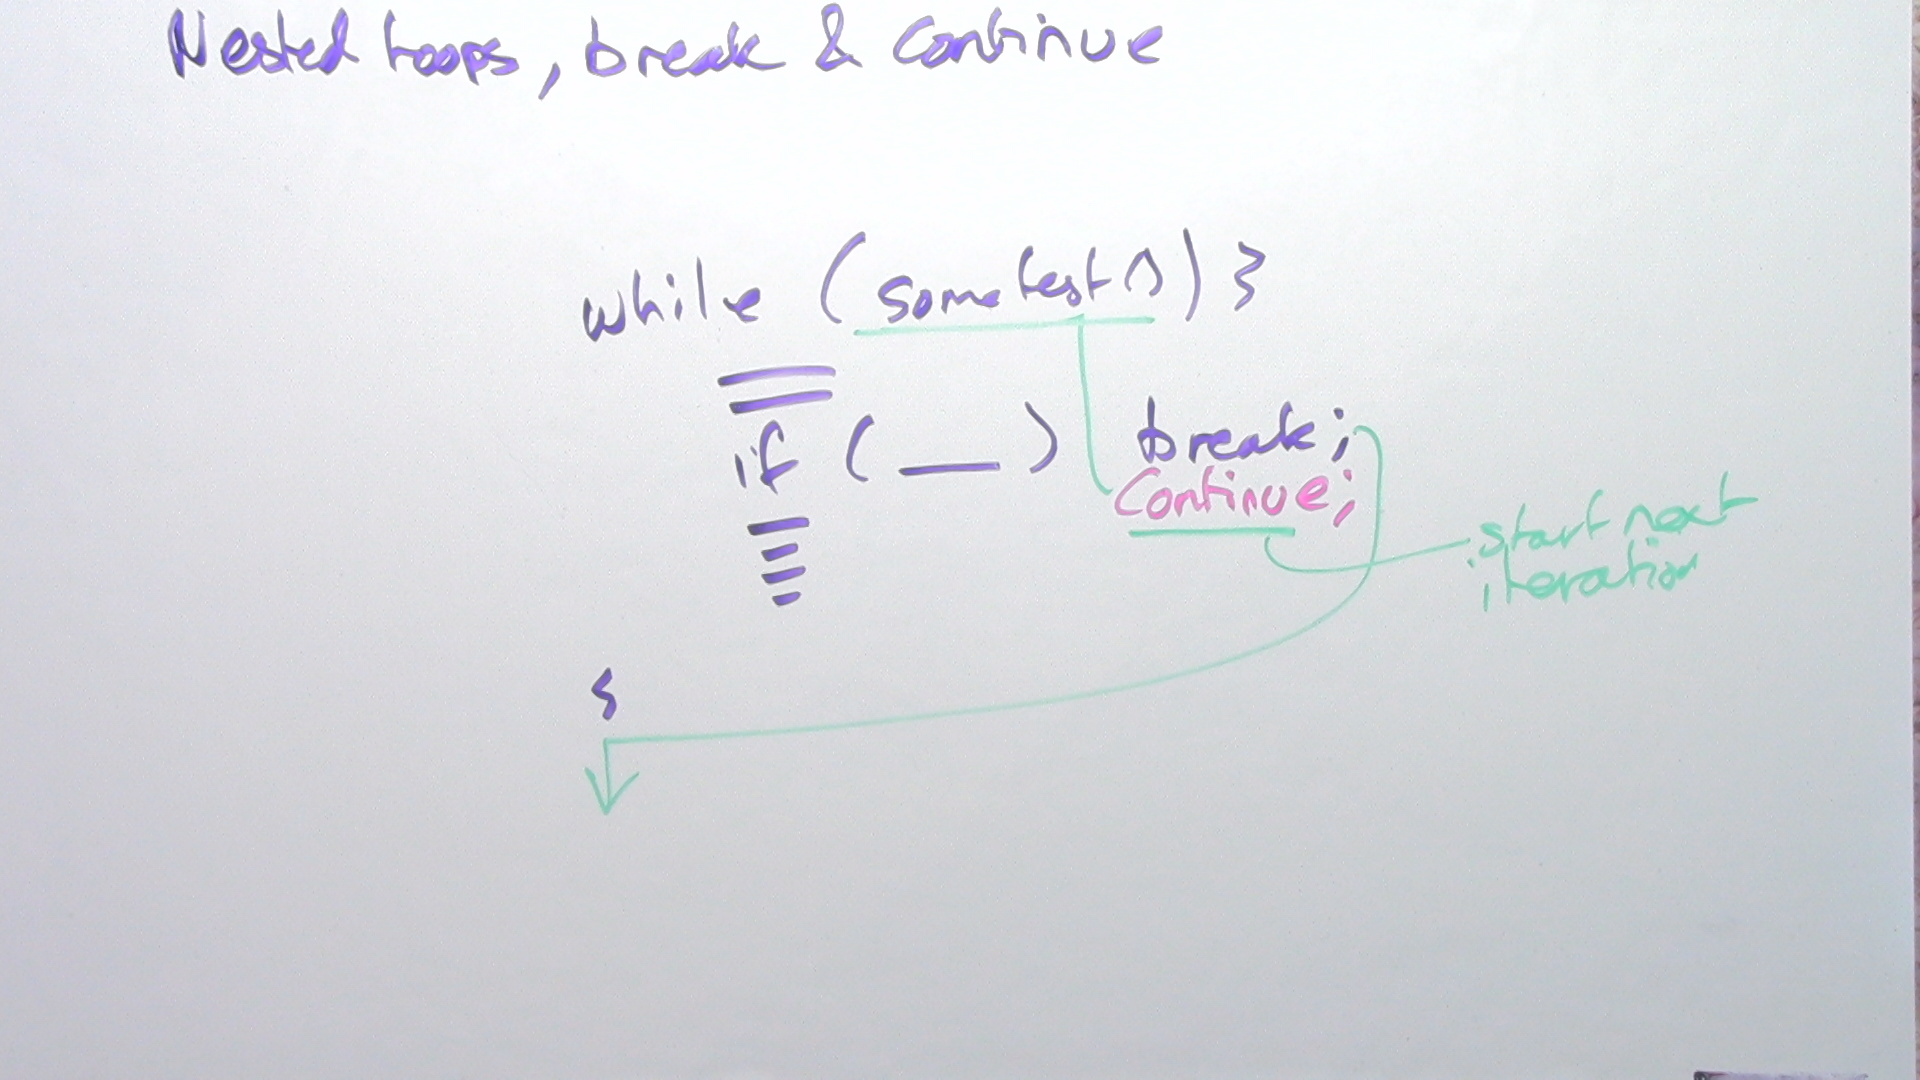 Nested loops, break & continue
while (sometest()) {
if ( __ ) break;
continue;
start next
iteration
}